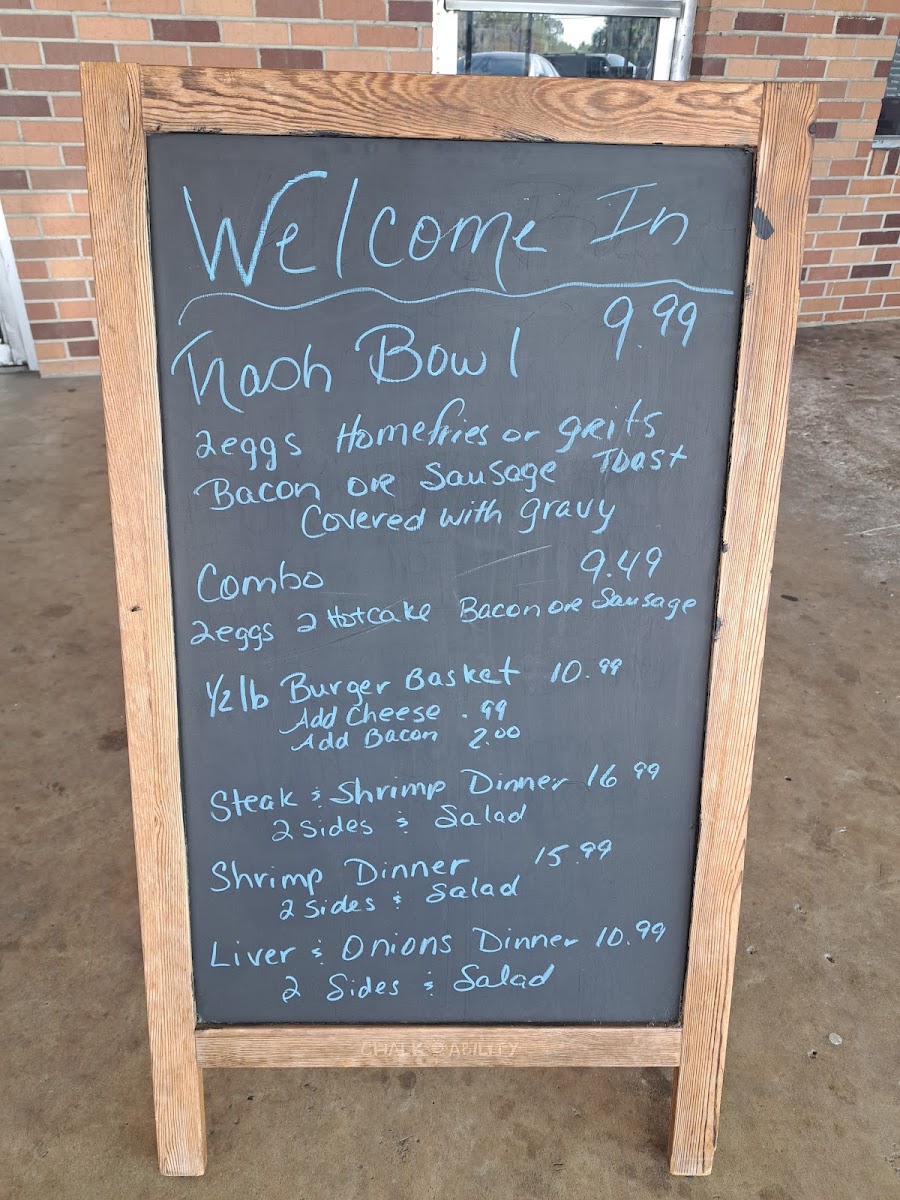 Welcome In
Trash Bowl 9.99
2eggs Homefries or grits
Bacon or Sausage Toast
Covered with gravy
Combo 9.49
2eggs 2 Hotcake Bacon or Sausage
1/2 lb Burger Basket 10.99
Add Cheese .99
Add Bacon 2.00
Steak & Shrimp Dinner 16 99
2 Sides & Salad
Shrimp Dinner 15.99
2 Sides & Salad
Liver & Onions Dinner 10.99
2 Sides & Salad
CHALK ABILITY